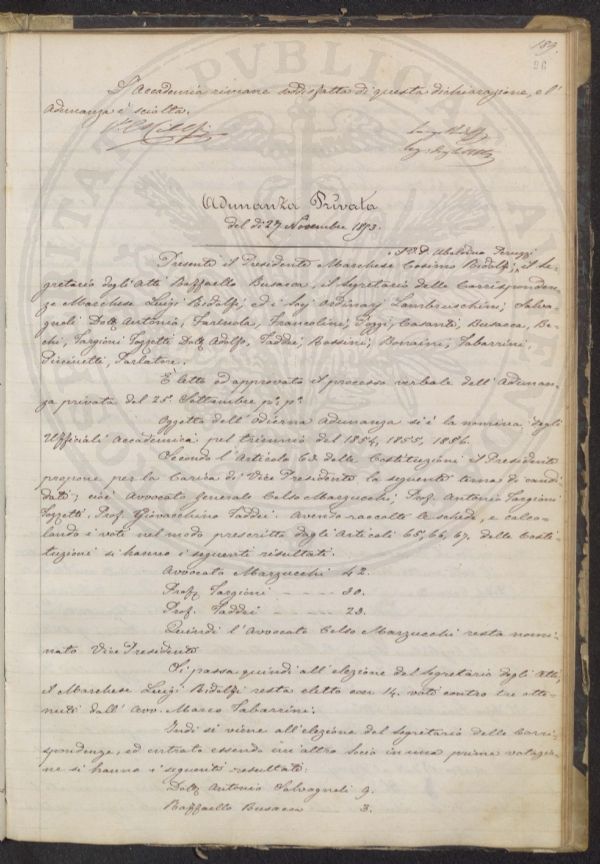 189.
26
L'Accademia rimane soddisfatta di questa dichiarazione, e l'
Adunanza è sciolta.
Adunanza Privata
del dì 27 Novembre 1853.
Presenti il Presidente Marchese Cosimo Ridolfi, il Se-
gretario degli Atti Raffaello Busacca, il Segretario delle Corrisponden-
ze Marchese Luigi Ridolfi, ed i Soci Ordinarj Lambruschini, Salva-
gnoli Dott. Antonio, Farinola, Francolini, Poggi, Casanti, Busacca, Be-
chi, Targioni Tozzetti Dott. Adolfo, Taddei, Rossini, Bonaini, Tabarrini,
Piccinetti, Parlatore.
È letto ed approvato il processo verbale dell'Adunan-
za privata del 25 Settembre p.º p.º
Oggetto dell'odierna Adunanza si è la nomina degli
Uffiziali Accademici pel triennio del 1854, 1855, 1856.
Secondo l'Articolo 63 delle Costituzioni il Presidente
propone per la Carica di Vice Presidente la seguente terna di candi
dati; cioè Avvocato Generale Celso Marzucchi, Prof. Antonio Targioni
Tozzetti, Prof. Giovacchino Taddei. Avendo raccolte le schede, e calco-
lando i voti nel modo prescritto dagli Articoli 65, 66, 67, delle Costi-
tuzioni si hanno i seguenti resultati.
Avvocato Marzucchi 42.
Prof. Targioni 30.
Prof. Taddei 23.
Quindi l'Avvocato Celso Marzucchi resta nomi-
nato Vice Presidente
Si passa quindi all'elezione del Segretario degli Atti,
il Marchese Luigi Ridolfi resta eletto con 14 voti contro tre otte-
nuti dall'Avv. Marco Tabarrini.
Indi si viene all'elezione del Segretario delle Corri-
spondenze, ed entrato essendo un altro Socio in una prima votazio-
ne si hanno i seguenti resultati.
Dott. Antonio Salvagnoli 9.
Raffaello Busacca 3.